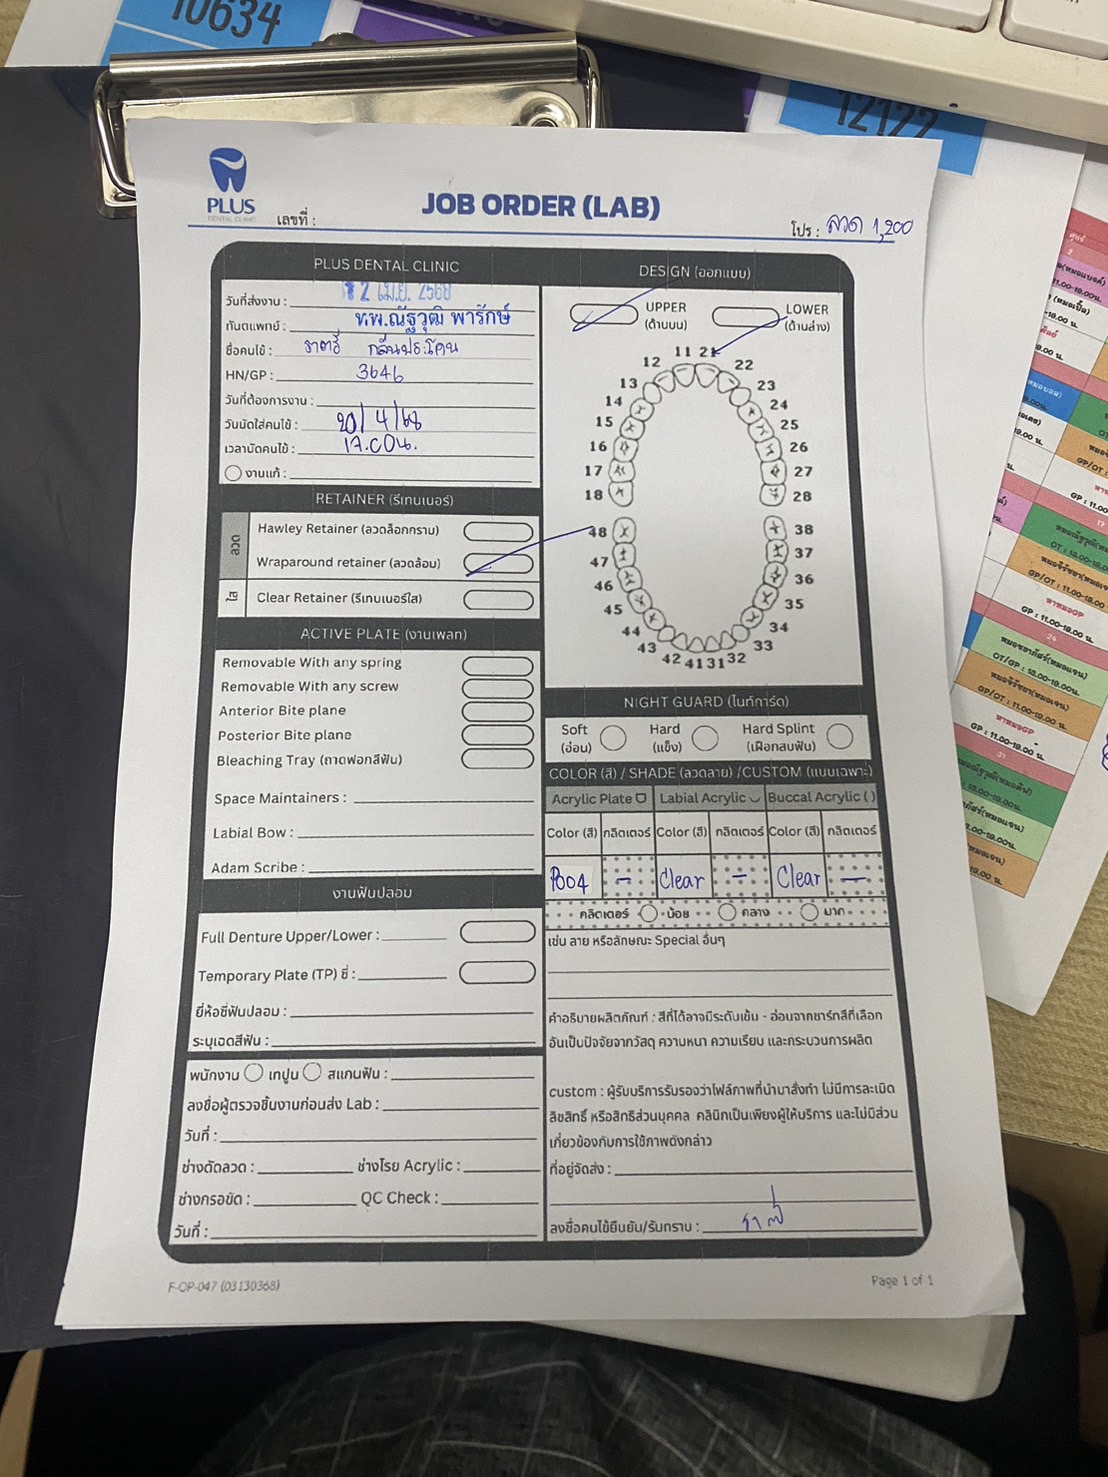 10634
12122
PLUS
DENTAL CLINIC
JOB ORDER (LAB)
เลขที่ :
โปร : ลวด 1,200
PLUS DENTAL CLINIC
วันที่ส่งงาน : 12 เม.ย. 2568
ทันตแพทย์ : ท.พ.ณัฐวุฒิ พารักษ์
ชื่อคนไข้ : ราตรี กลิ่นประโคน
HN/GP : 3646
วันที่ต้องการงาน :
วันนัดใส่คนไข้ : 20/4/68
เวลานัดคนไข้ : 17.00น.
งานแก้ :
RETAINER (รีเทนเนอร์)
ลวด
Hawley Retainer (ลวดล็อกกราม)
Wraparound retainer (ลวดล้อม)
ใส
Clear Retainer (รีเทนเนอร์ใส)
ACTIVE PLATE (งานเพลท)
Removable With any spring
Removable With any screw
Anterior Bite plane
Posterior Bite plane
Bleaching Tray (ถาดฟอกสีฟัน)
Space Maintainers :
Labial Bow :
Adam Scribe :
งานฟันปลอม
Full Denture Upper/Lower :
Temporary Plate (TP) ซี่ :
ยี่ห้อซี่ฟันปลอม :
ระบุเฉดสีฟัน :
พนักงาน เทปูน สแกนฟัน :
ลงชื่อผู้ตรวจชิ้นงานก่อนส่ง Lab :
วันที่ :
ช่างดัดลวด : ช่างโรย Acrylic :
ช่างกรอขัด : QC Check :
วันที่ :
DESIGN (ออกแบบ)
UPPER
(ด้านบน)
LOWER
(ด้านล่าง)
11 21
12 22
13 23
14 24
15 25
16 26
17 27
18 28
48 38
47 37
46 36
45 35
44 34
43 33
42 41 31 32
NIGHT GUARD (ไนท์การ์ด)
Soft
(อ่อน)
Hard
(แข็ง)
Hard Splint
(เฝือกสบฟัน)
COLOR (สี) / SHADE (ลวดลาย) /CUSTOM (แบบเฉพาะ)
Acrylic Plate Labial Acrylic Buccal Acrylic ( )
Color (สี) กลิตเตอร์ Color (สี) กลิตเตอร์ Color (สี) กลิตเตอร์
P004 - Clear - Clear -
กลิตเตอร์ น้อย กลาง มาก
เช่น ลาย หรือลักษณะ Special อื่นๆ
คำอธิบายผลิตภัณฑ์ : สีที่ได้อาจมีระดับเข้ม - อ่อนจากชาร์ทสีที่เลือก
อันเป็นปัจจัยจากวัสดุ ความหนา ความเรียบ และกระบวนการผลิต
custom : ผู้รับบริการรับรองว่าไฟล์ภาพที่นำมาสั่งทำ ไม่มีการละเมิด
ลิขสิทธิ์ หรือสิทธิส่วนบุคคล คลินิกเป็นเพียงผู้ให้บริการ และไม่มีส่วน
เกี่ยวข้องกับการใช้ภาพดังกล่าว
ที่อยู่จัดส่ง :
ลงชื่อคนไข้ยืนยัน/รับทราบ :
F-OP-047 (03130368)
Page 1 of 1